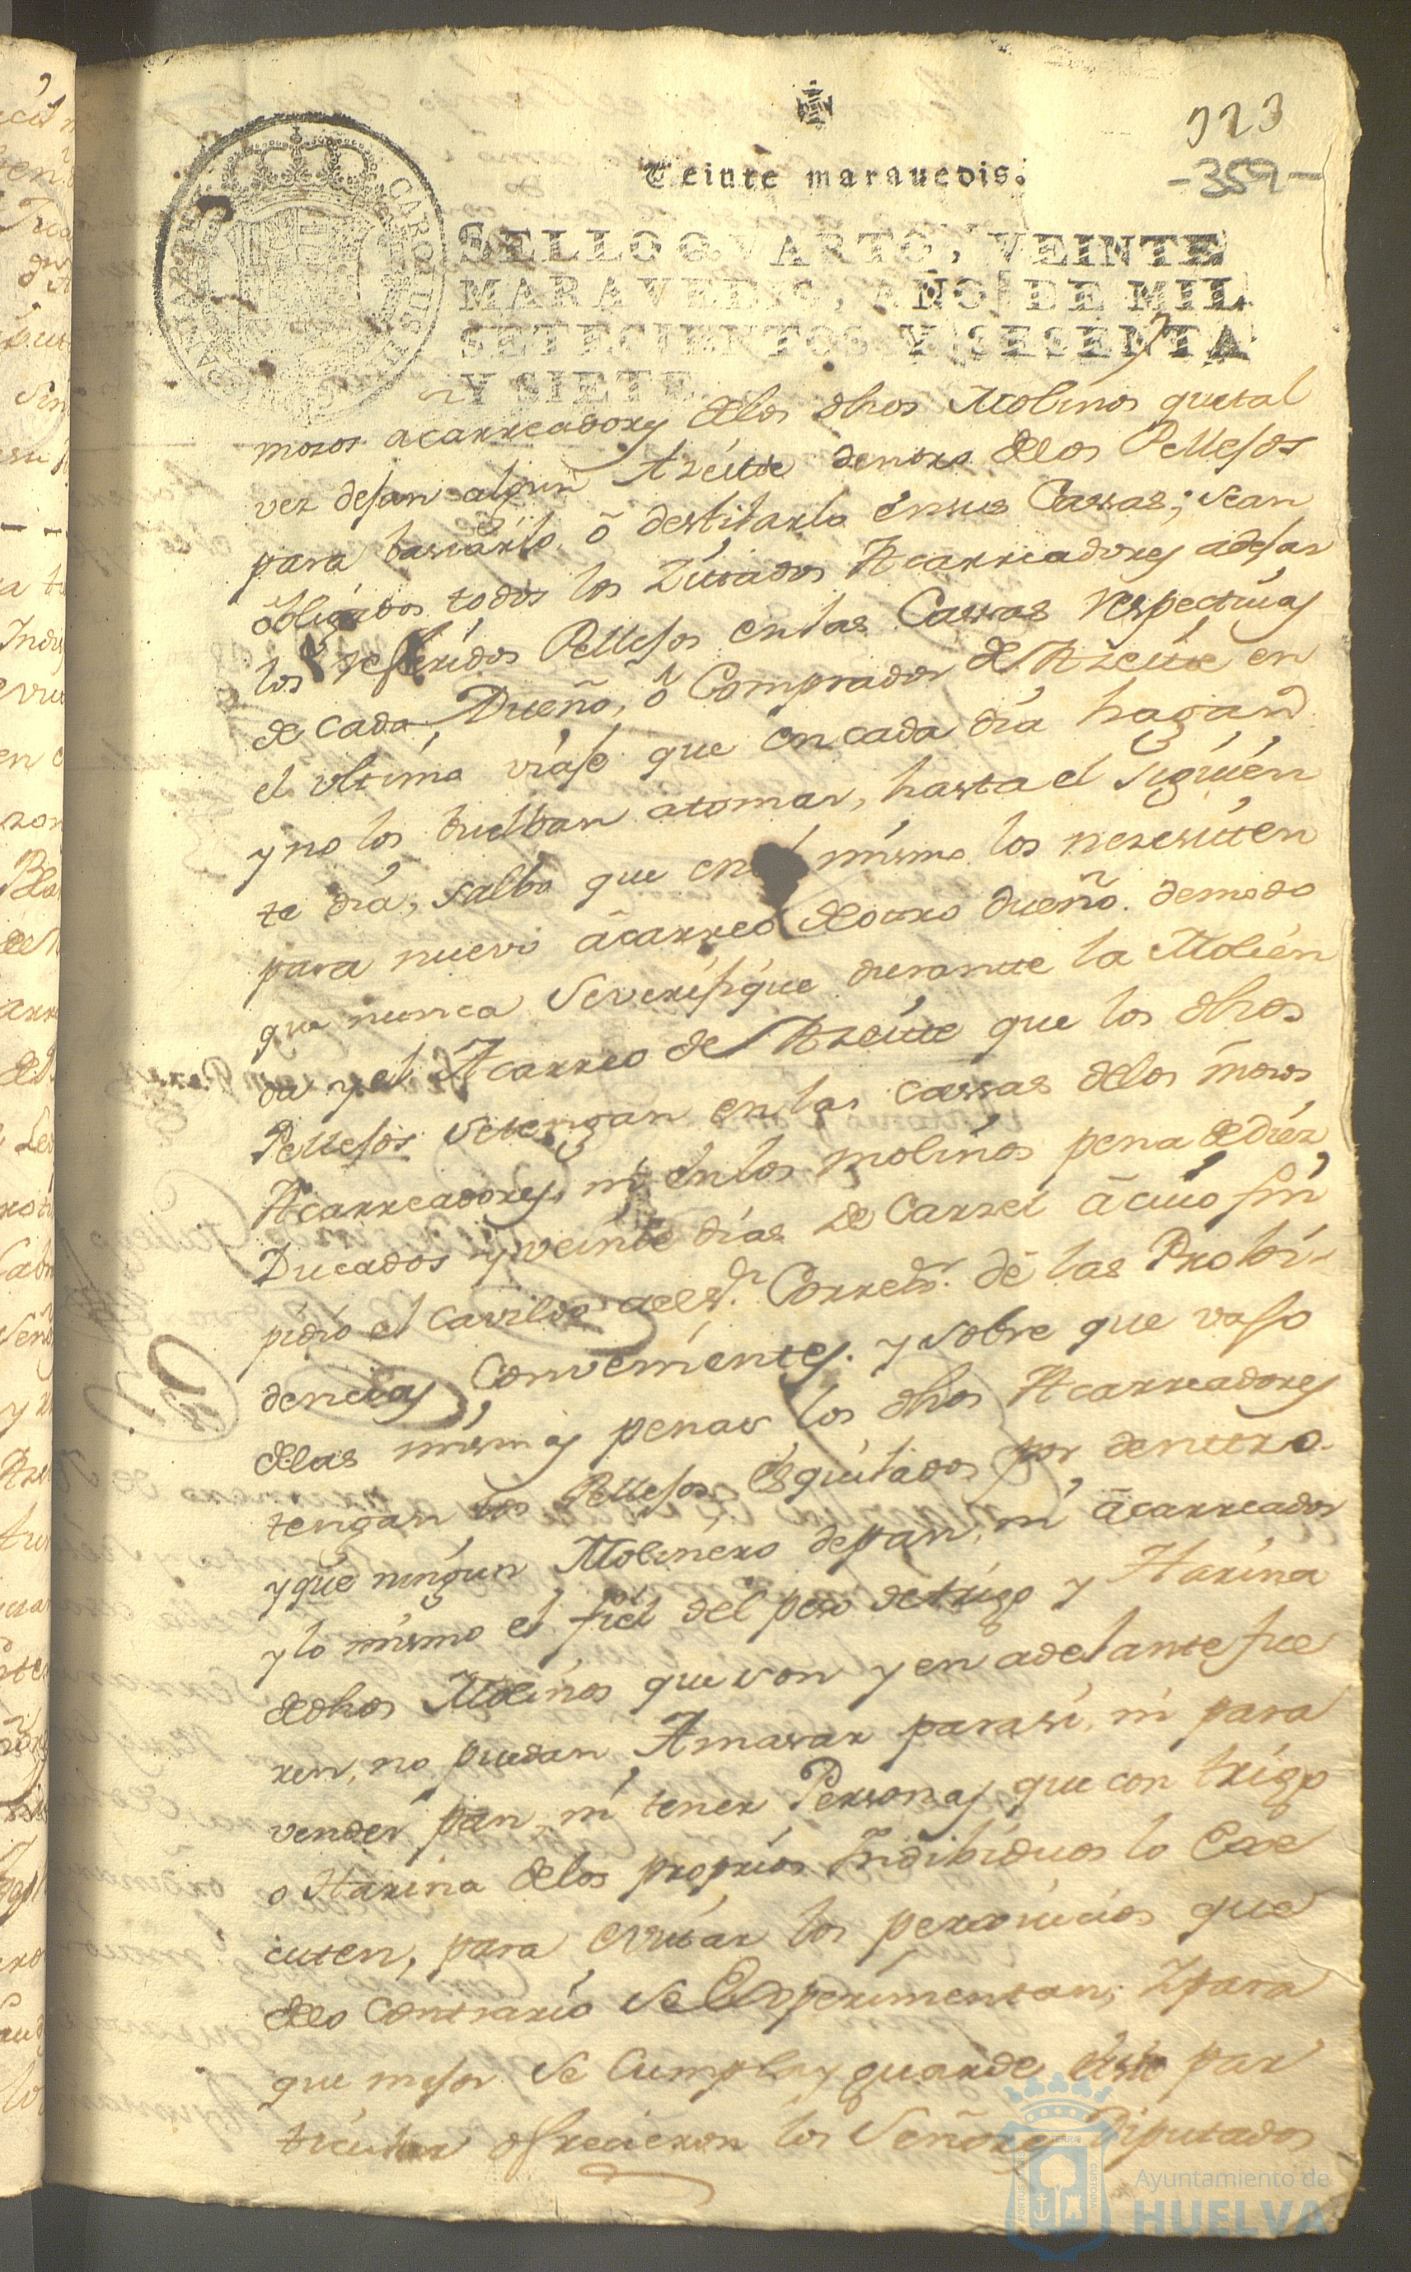 323
-359-
Veinte marauedis.
SELLO QVARTO, VEINTE
MARAVEDIS, AÑO DE MIL
SETECIENTOS Y SESENTA
Y SIETE.
mosos acarreadores delos dhos Molinos quetal
vez dejan algun Azeite dentro delos Pellejos
para basiarlo, ô destilarlo ensus Cassas; sean
obligados todos los zitados Acarreadores adejar
los referidos Pellejos enlas Cassas respectivas
de cada Dueño, ô Comprador de Azeite en
el vltimo viaje que encada dia hagan
y no los buelban atomar, hasta el siguien
te dia, salbo que en el mismo los nezesiten
para nuevo acarreo deotro dueño. demodo
que nunca Severifique durante la Molien
da y el Acarreo de Azeite que los dhos
Pellejos Setengan enlas cassas delos mosos
Acarreadores, ni enlos molinos pena de diez
Ducados y veinte dias de Carzel â cuio fin
pidio el Cavildo a el Sr. Corredr. dé las Probi-
dencias Convenientes. y sobre que vajo
delas mismas penas los dhos Acarreadores
tengan los Pellejos esquilados por dentro.
y que ningun Molinero depan, ni acarreador
y lo mismo el fiel del peso de trigo y Harina
dedhos Molinos que son y en adelante fue
ren, no puedan Amasar parasi, ni para
vender pan, ni tener Personas que con trigo
o Harina delos proprios Indibiduos lo Exe
cuten, para evitar los perxuicios que
delo contrario se Experimentan; Ypara
que mejor Se Cumpla y guarde este par
ticular ofrecieron los Señores Diputados
Ayuntamiento de
HUELVA